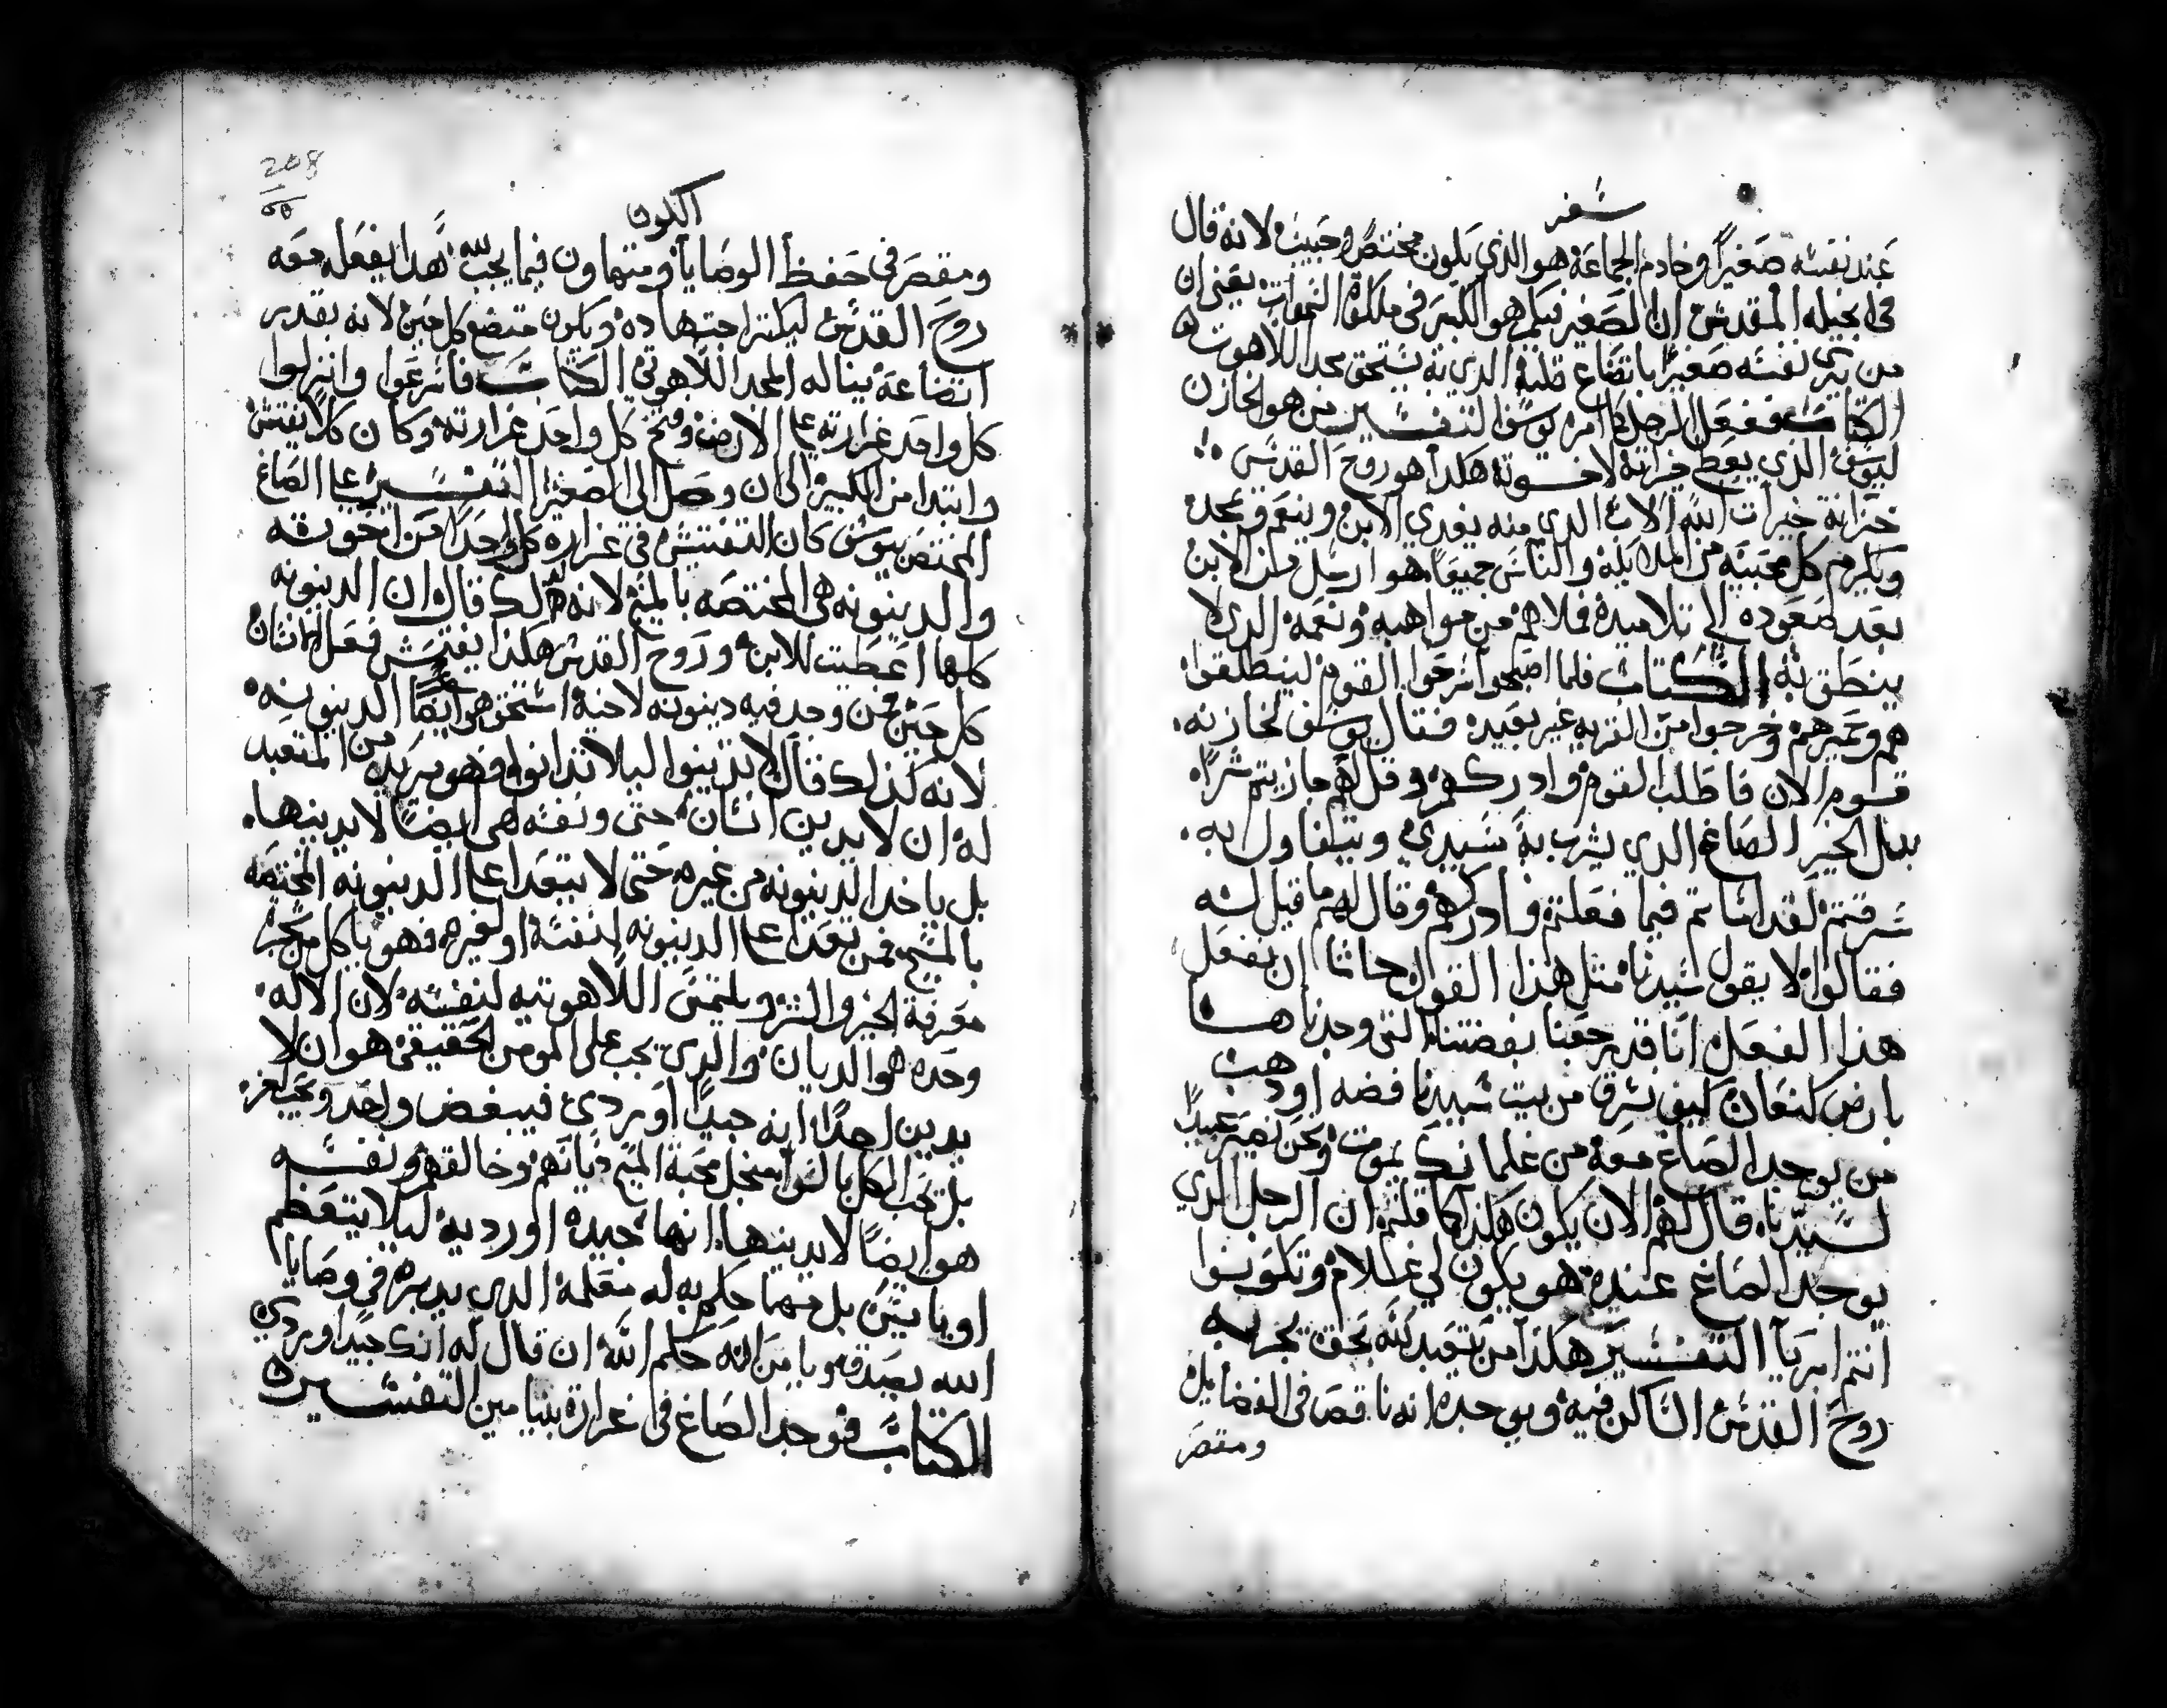 سفر
عند نفسه صغيرًا وخادم الجماعة هو الذي يكون مختصرًا وحبيب لانه قال
فى انجيله المقدس ان الصغير فيكم هو الكبير فى ملكوة السموات يعنى ان
من يرى نفسه صغيرًا باتضاع قلبه الذي به يستحق مجد اللاهوت
الكتاب ففعل الرجل كما امره يوسف التفسير من هو الخازن
ليوسف الذي يعطى خزانة لاخوته هكدا هو روح القدس
خزانة خيرات الله الاب الدي منه يغدي الابن وينعم ومجد
ويكرم كل محبيه من الملايكه والناس جميعًا هو ارسل من الابن
بعد صعوده الي تلاميده فملاهم من مواهبه ونعمه الدي لا
ينطق به الكتاب فلما اصبحوا سرحوا القوم لينطلقوا
هم وحميرهم وخرجوا من القريه غير بعيده فقال يوسف لخازنه
قوم الان فاطلب القوم وادركهم وقل لهم جازيتم شرًا
بدل الخير الصاع الدي يشرب به سيدي ويتفاول به
سرقتم لقد اساتم فيما فعلتم وادركهم وقال لهم ما قيل له
فقالوا لا يقول سيدنا مثل هذا القول حاشا ان نفعل
هذا الفعل انا قد رجعنا بفضتنا التي وجدنا ها
بارض كنعان كيف نسرق من بيت سيدنا فضه او دهب
من يوجد الصاع معه من غلمانك يموت ونحن نصير عبيدًا
لسيدنا قال لهم الان يكون هكذا كما قلتم ان الرجل الدي
يوجد الصاع عنده هو يكون لي غلام وتكونوا
انتم ابريآ التفسير هكذا من يتعبد لله بحق يجربه
روح القدس الساكن فيه ويوجده انه ناقص فى الفضايل
ومقصر
208
الكون
ومقصر في حفظ الوصايا ومتهاون فيما يجب لله هدا يفعله معه
روح القدس ليكتر اجتهاده ويكون متضع كل حين لانه بقدر
اتضاعه يناله المجد اللاهوتي الكتاب فاسرعوا وانزلوا
كل واحد غرارته على الارض وفتح كل واحد غرارته وكان كلا يفتش
وابتدا من الكبير الى ان وصل الى الصغير التفسير على الصاع
المختص بيوسف كان التفتيش في غراره كل واحد من اخوته
والدينونه هى المختصه بالمسيح لانه كذلك قال ان الدينونه
كلها اعطيت للابن وروح القدس هكذا يفتش فعل الانسان
كل حين فمن وجد فيه دينونه لاخيه استحق هو ايضًا الدينونه
لانه كذلك قال لا تدينوا ليلا تدانوا فهو يريد من المتعبد
له ان لا يدين انسان حتى ونفسه هي ايضًا لا يدينها
بل ياخد الدينونه من غيره حتى لا يتعدا على الدينونه المختصه
بالمسيح فمن تعدا على الدينونه لنفسه او لغيره فهو ياكل من شجره
معرفة الخير والشر ويلتمس اللاهوتيه لنفسه لان الاله
وحده هو الديان والدي يجب على المومن الحقيقي هو ان لا
يدين احدًا انه جيدًا او ردي فيبغض واحد ويحب اخر
بل يحب الكل بالسوا منجل محبة المسيح ديانهم وخالقهم ونفسه
هو ايضًا لا يدينها انها جيده او رديه ليلا يتعظم
او يايس بل مهما حكم به له معلمه الدي يدبره في وصايا
الله يصدقه ويامن انه حكم الله ان قال له انك جيدًا او ردي
الكتاب فوجد الصاع في غرارة بنيامين التفسير